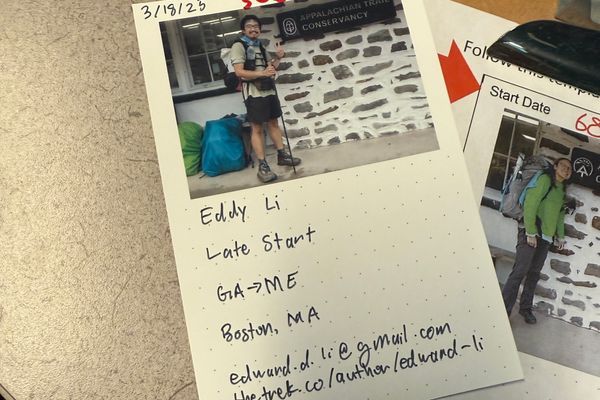 3/18/23
APPALACHIAN TRAIL
CONSERVANCY
Eddy Li
Late Start
GA→ME
Boston, MA
edward.d.li@gmail.com
thetrek.co/author/edward-li
Follow this
Start Date
68